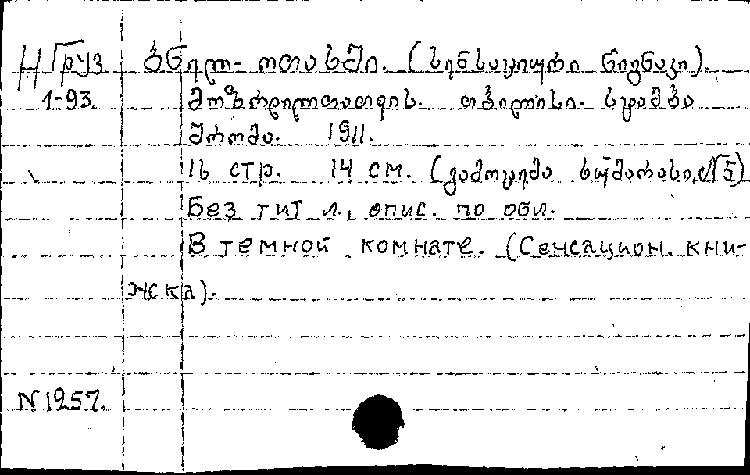 Н Груз ბნელ-ოთახში. (სენსაციური წიგნაკი).
1-93. მოზრდილთათვის. თბილისი. სტამბა
შრომა. 1911.
16 стр. 14 см. (გამოცემა № 5)
Без тит л., опис. по обл.
В темной комнате. (Сенсацион. кни-
жка).
N 1257.